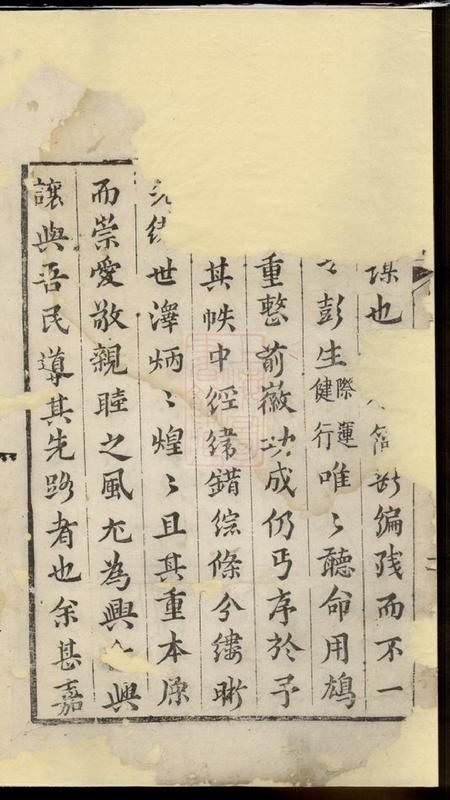 也編殘而不一
彭生際運健行唯〻聽命用鳩
重整前徽功成仍丐序於予
其帙中經緯錯綜條分縷晰
世澤炳〻煌〻且其重本源
而崇愛敬親睦之風尤為興興
讓與吾民導其先路者也余甚嘉